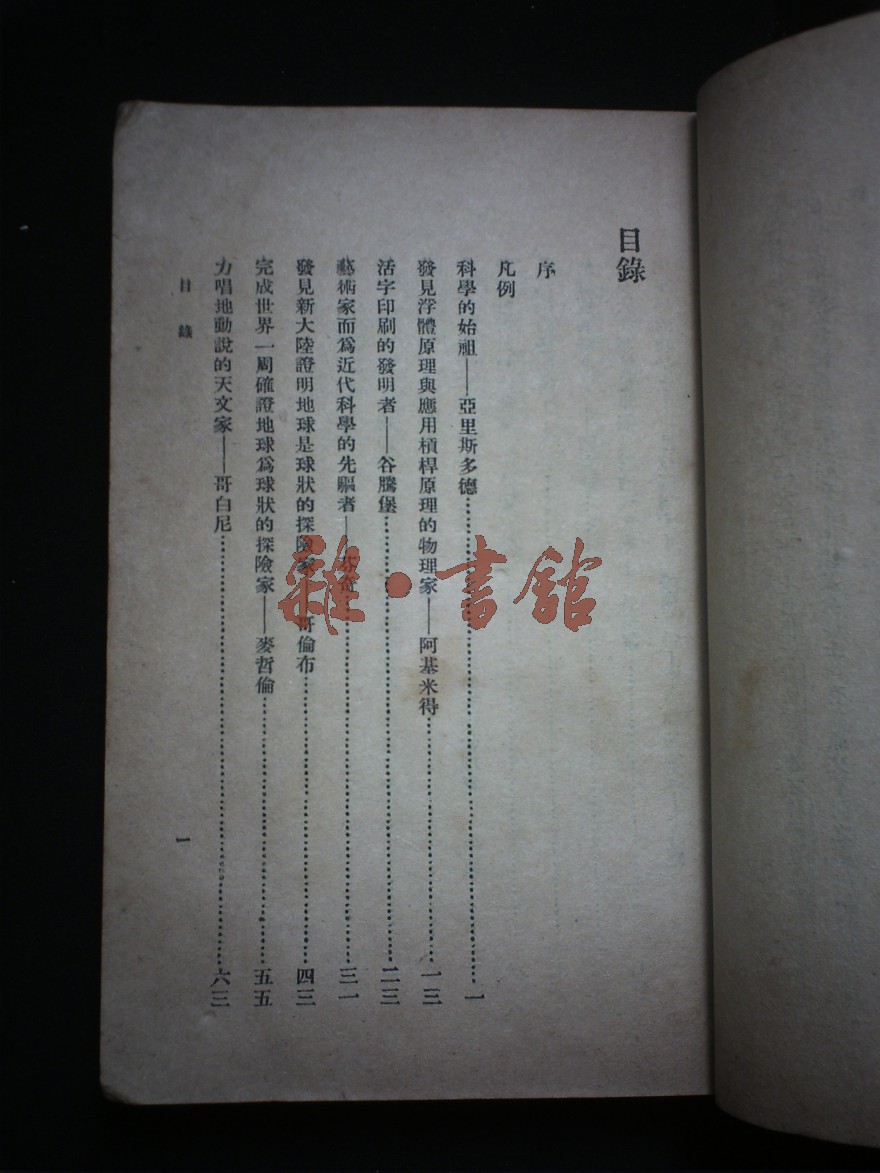 目錄
序
凡例
科學的始祖——亞里斯多德…………一
發見浮體原理與應用槓桿原理的物理家——阿基米得…………一三
活字印刷的發明者——谷騰堡…………二三
藝術家而爲近代科學的先驅者——芬奇…………三一
發見新大陸證明地球是球狀的探險家——哥倫布…………四三
完成世界一周確證地球爲球狀的探險家——麥哲倫…………五五
力唱地動說的天文家——哥白尼…………六三
目錄
一
雜·書館